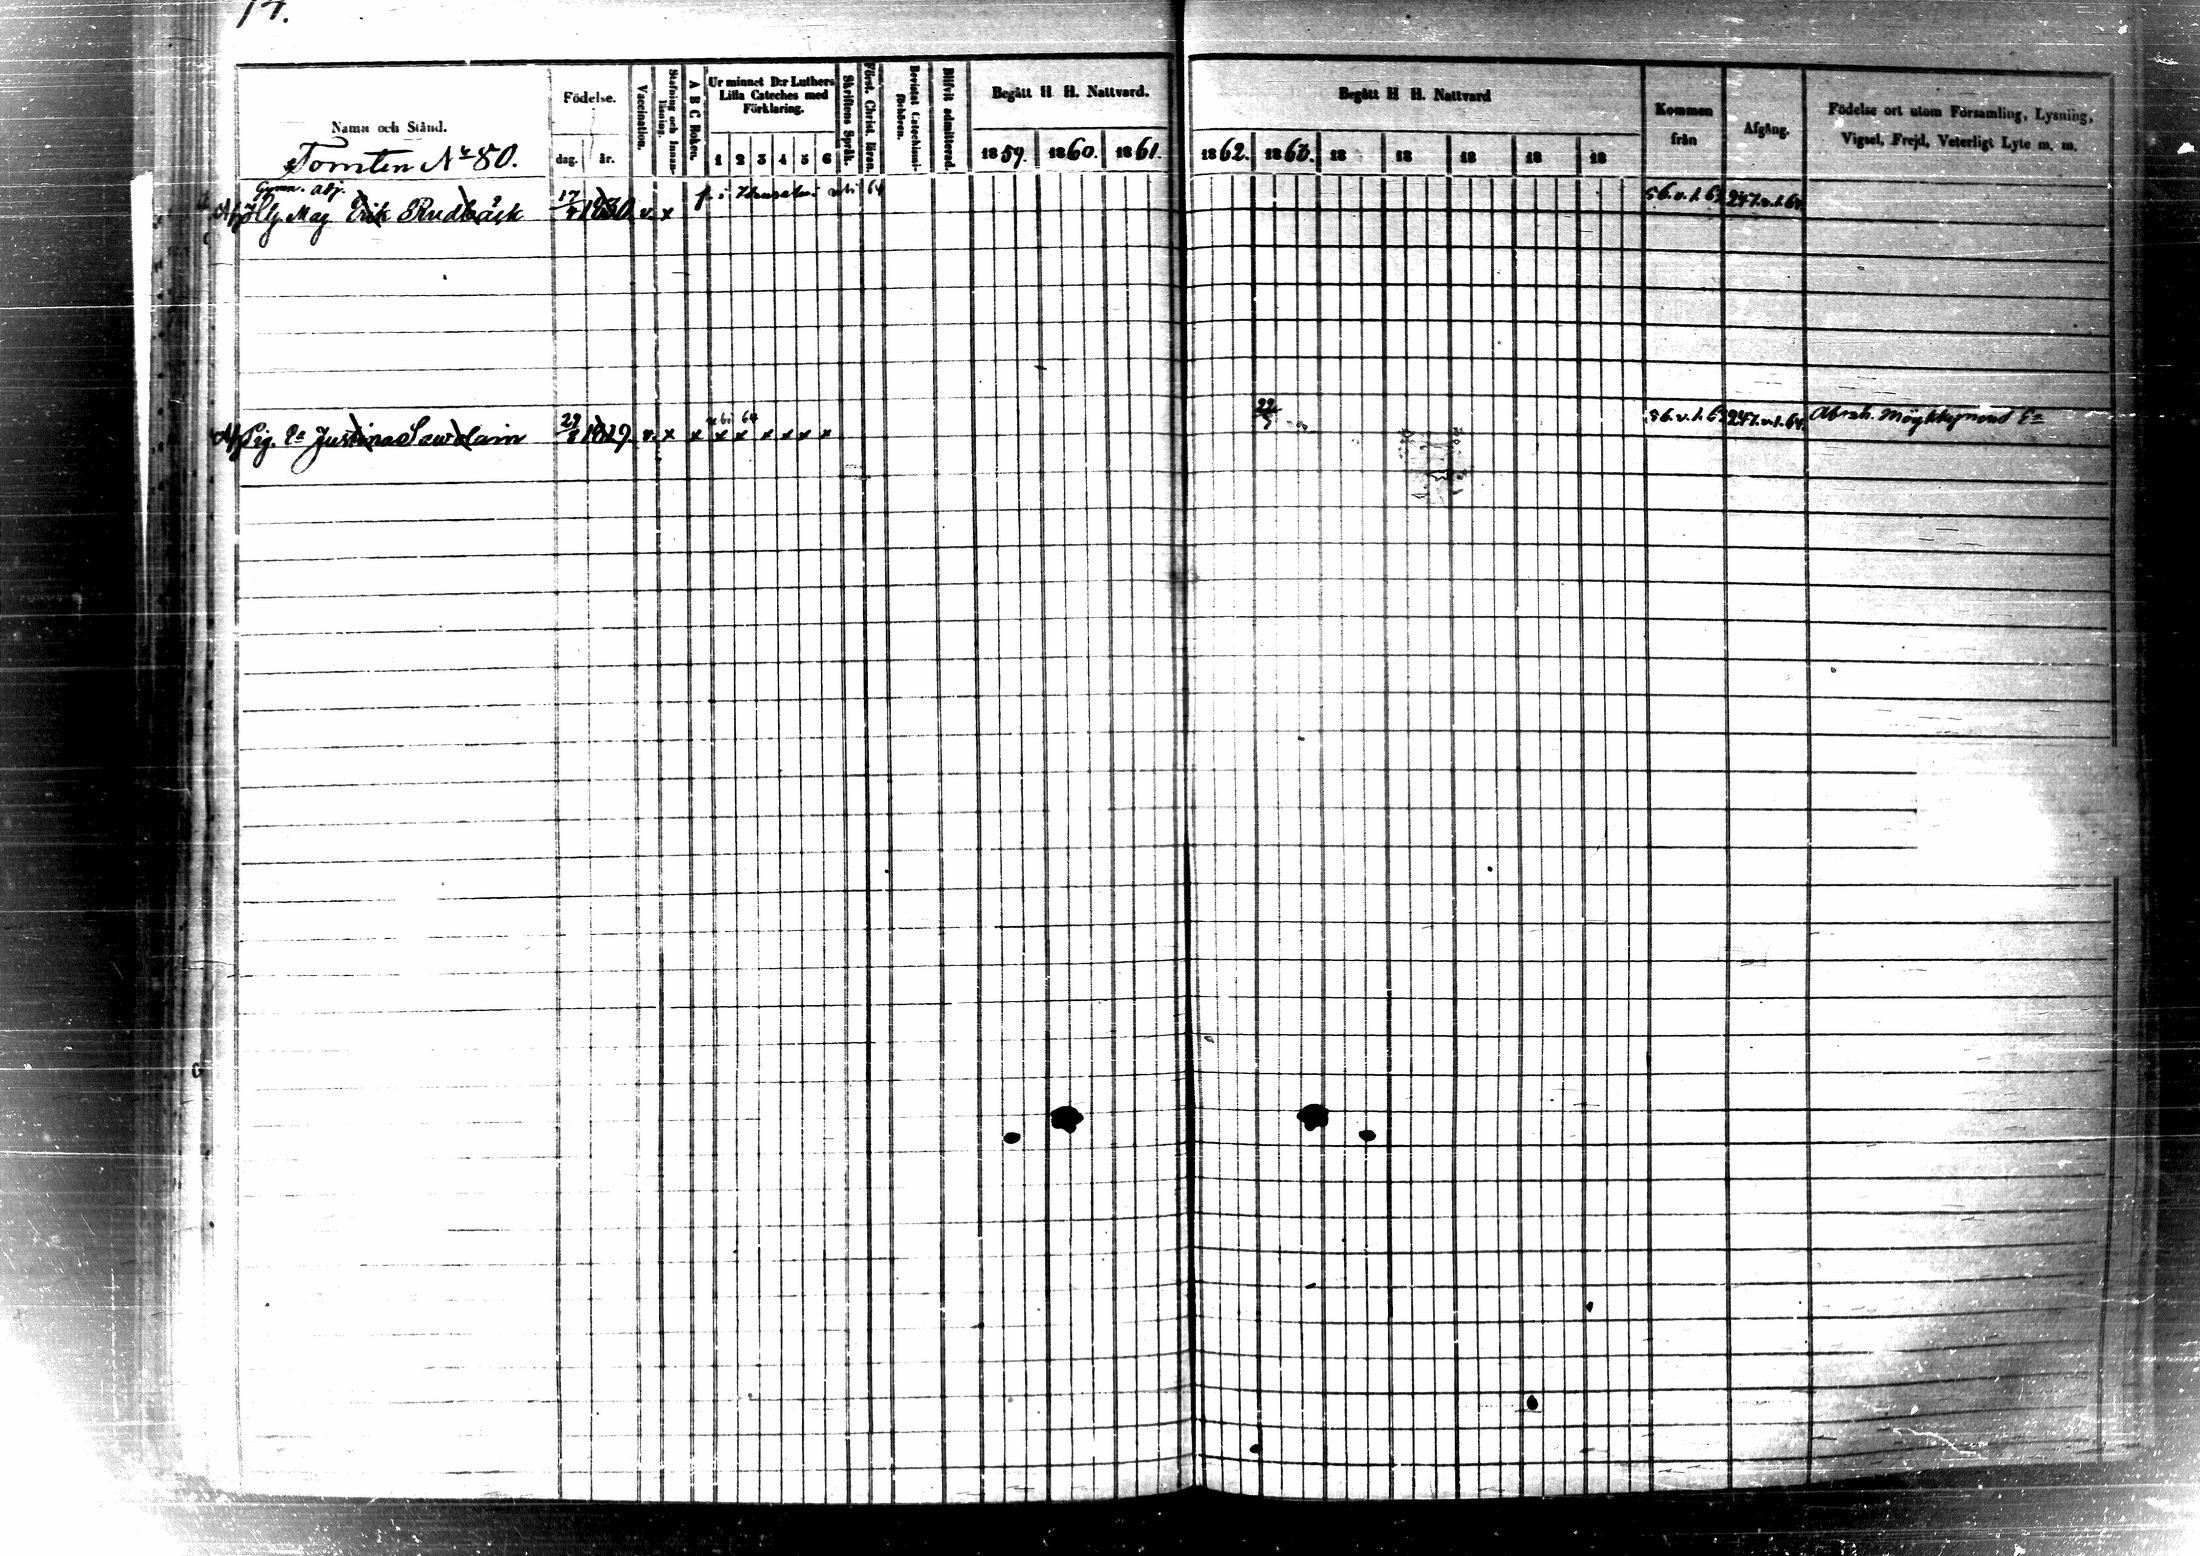 74.
Namn och Stånd.
Tomten No 80.
Födelse.
dag. år.
Vaccination.
Stafning och Innanläsning.
A B C Boken.
Ur minnet D:r Luthers Lilla Cateches med Förklaring.
1 2 3 4 5 6
Skriftens Språk.
Först. Christ. läran.
Bevistat Catechismi-förhören.
Blifvit admitterad.
Begått H H. Nattvard.
1859. 1860. 1861.
Begått H H. Nattvard
1862. 1863. 18 18 18 18 18
Kommen från
Afgång.
Födelse ort utom Församling, Lysning, Vigsel, Frejd, Veterligt Lyte m. m.
Gymn. Adj.
Mag Erik Rudbäck 17/ 1830 v x
f. i 64
56.v.1.63 247.v.1.64
Pig. Justina 29/8 1829. v. x x x x x x x x
64
22/
56.v.1.63 247.v.1.64 Abrah.